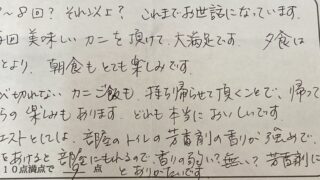 ～8回? それ以上? これまでお世話になっています。
回 美味しい カニ を 頂けて、大満足です。 夕食は
とより、朝食も とても 楽しみです。
が切れない カニご飯も、持ち帰らせて頂くことで、帰って
らの 楽しみも あります。どれも本当に おいしいです。
エストとしては、部屋のトイレの 芳香剤の香りが 強めで、
をあけると 部屋にもれるので、香りの弱い? 無い? 芳香剤に
10点満点で 点 と ありがたいです